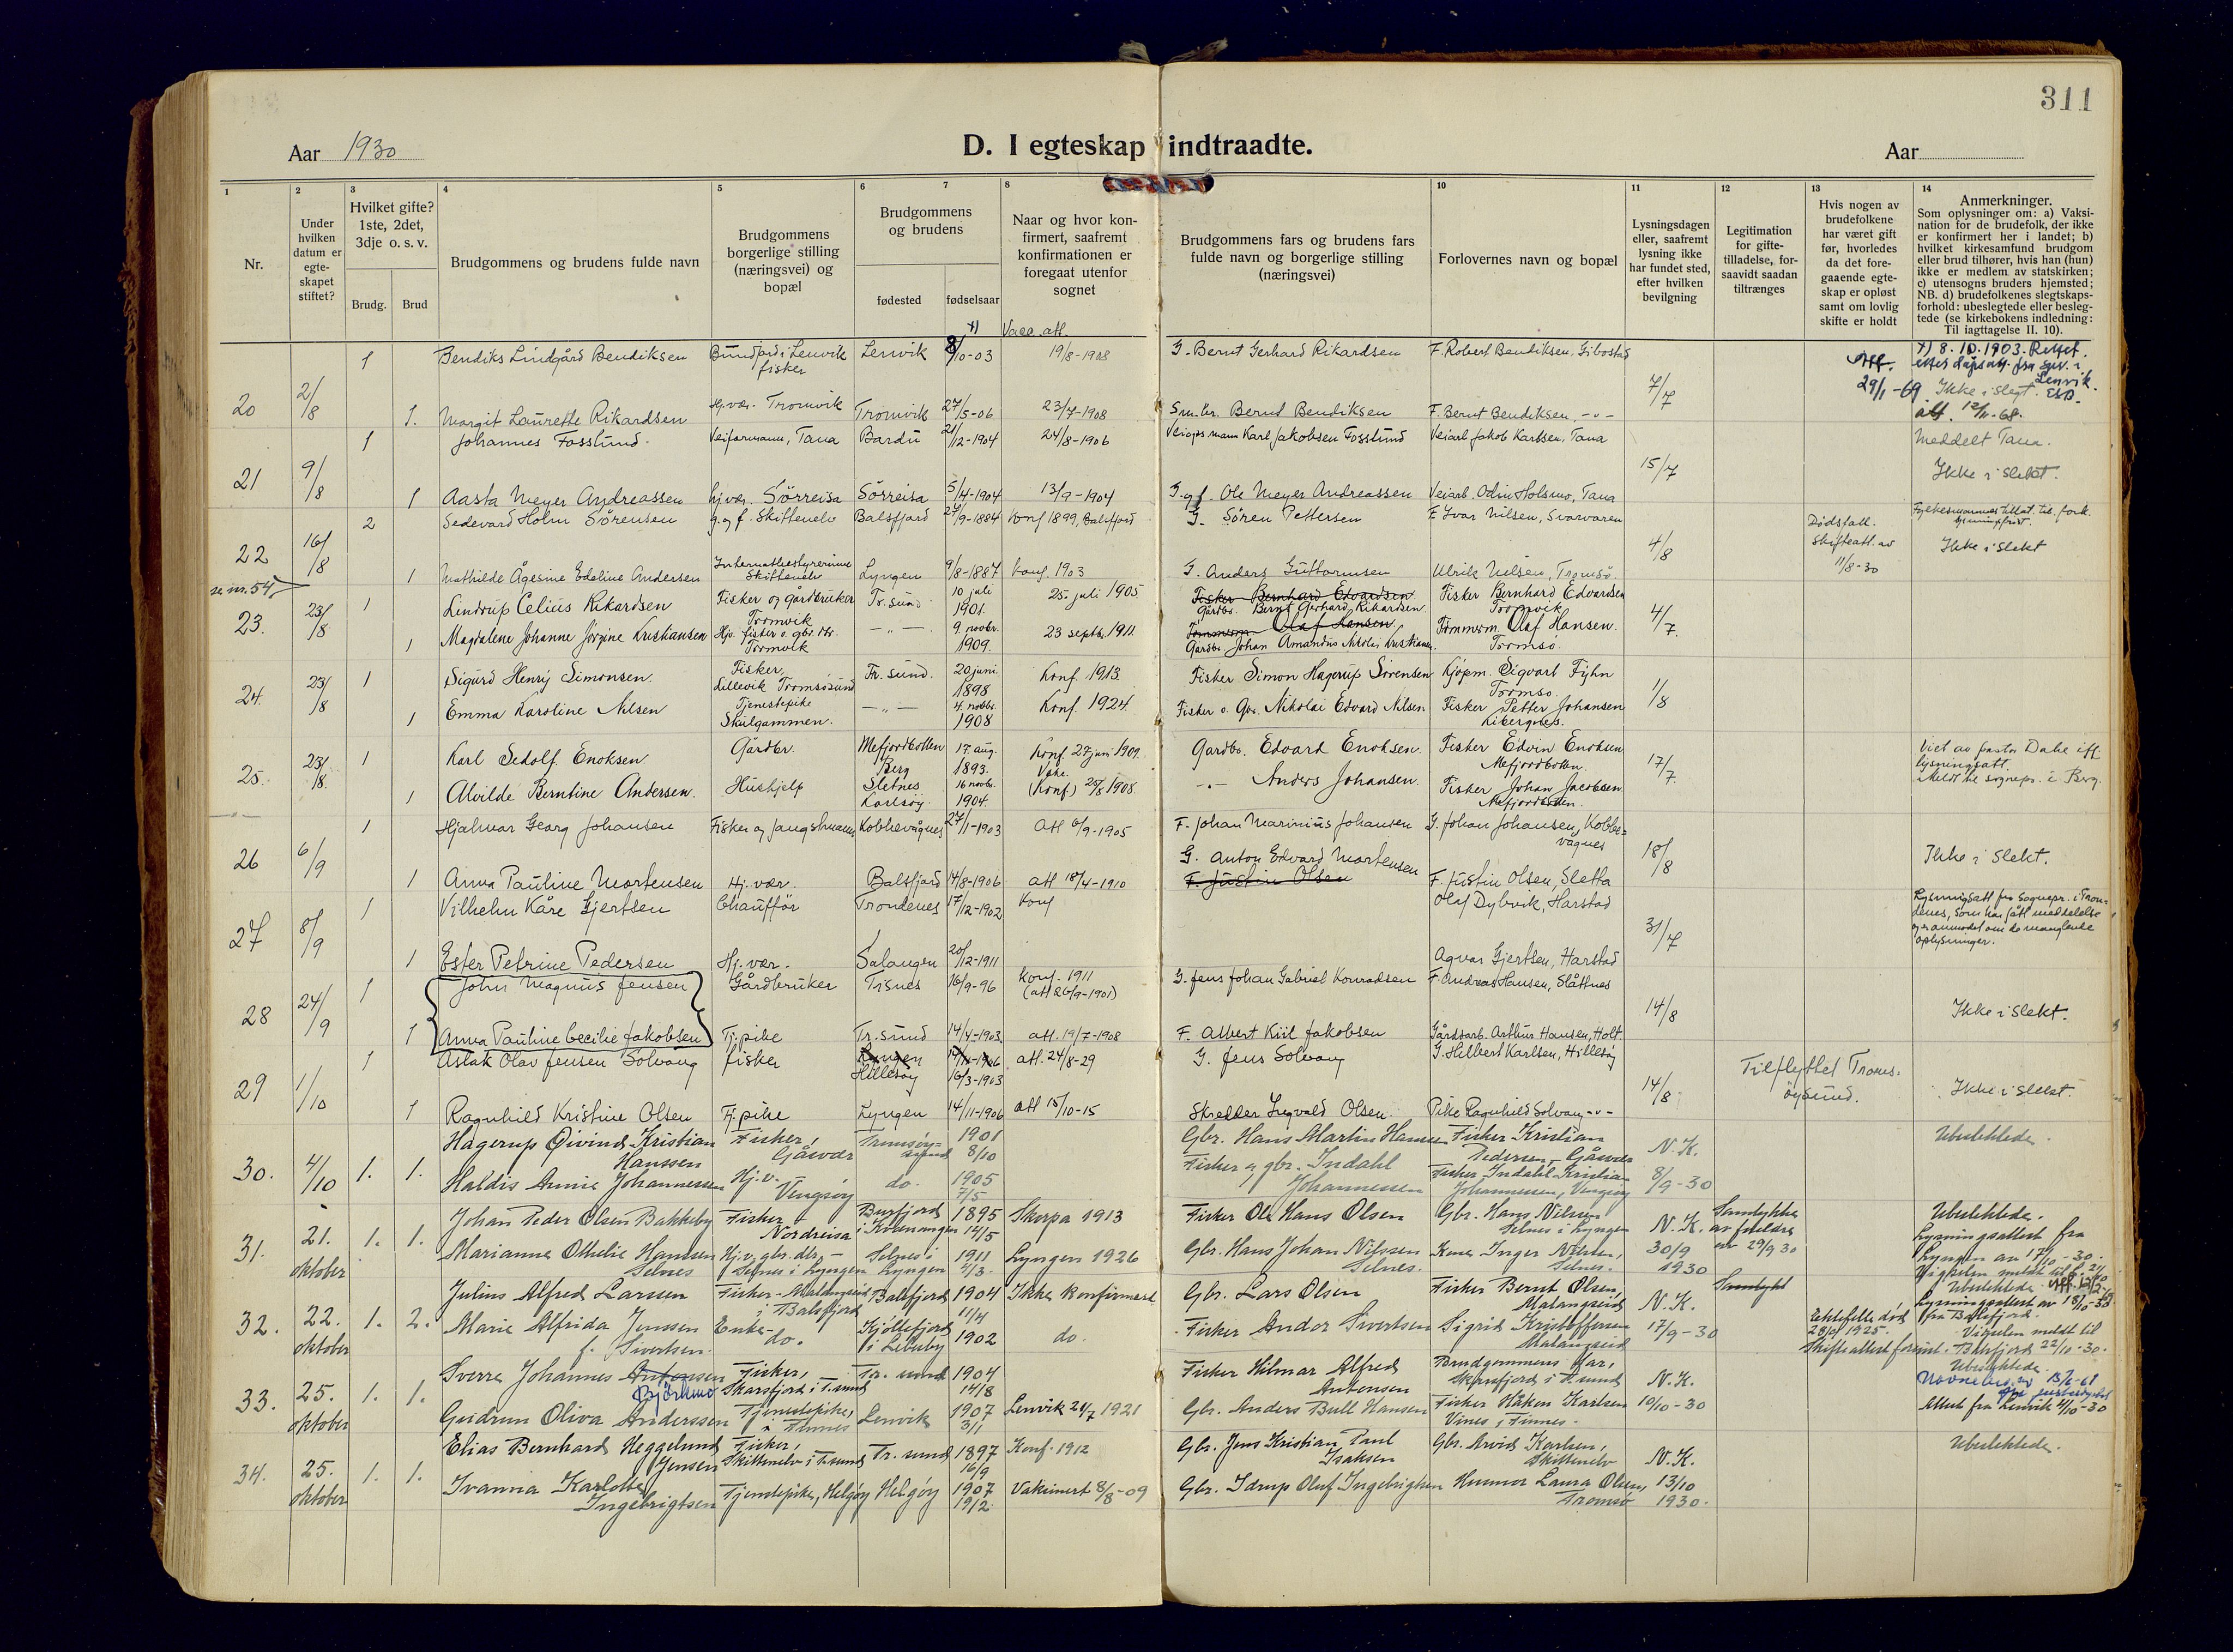 311
Aar 1930
D. I egteskap indtraadte.
Aar
1
2
3
4
5
6
7
8
10
11
12
13
14
Nr.
Under
hvilken
datum er
egte-
skapet
stiftet?
Hvilket gifte?
1ste, 2det,
3dje o. s. v.
Brudg.
Brud
Brudgommens og brudens fulde navn
Brudgommens
borgerlige stilling
(næringsvei) og
bopæl
Brudgommens
og brudens
fødested
fødselsaar
Naar og hvor kon-
firmert, saafremt
konfirmationen er
foregaat utenfor
sognet
Brudgommens fars og brudens fars
fulde navn og borgerlige stilling
(næringsvei)
Forlovernes navn og bopæl
Lysningsdagen
eller, saafremt
lysning ikke
har fundet sted,
efter hvilken
bevilgning
Legitimation
for gifte-
tilladelse, for-
saavidt saadan
tiltrænges
Hvis nogen av
brudefolkene
har været gift
før, hvorledes
da det fore-
gaaende egte-
skap er opløst
samt om lovlig
skifte er holdt
Anmerkninger.
Som oplysninger om: a) Vaksi-
nation for de brudefolk, der ikke
er konfirmert her i landet; b)
hvilket kirkesamfund brudgom
eller brud tilhører, hvis han (hun)
ikke er medlem av statskirken;
c) utensogns bruders hjemsted;
NB. d) brudefolkenes slegtskaps-
forhold: ubeslegtede eller besleg-
tede (se kirkebokens indledning:
Til iagttagelse II. 10).
x) Vacc. att.
1 Bendiks Lindgård Bendiksen Bundfjord i Lenvik Lenvik 8/10-03 19/8-1908 G. Bernt Gerhard Rikardsen F. Robert Bendiksen, Gibostad x) 8.10.1903. Rettet
fisker
etter dåpsatt. fra spr. i
Lenvik.
20 2/8 7/7 29/1-69 Ikke i slegt.
1. Margit Laurette Rikardsen Hj.vær. Tromvik Tromvik 27/5-06 23/7-1908 Sm.br. Bernt Bendiksen F. Bernt Bendiksen -"- att. 12/11-68.
1 Johannes Fosslund. Veiformann, Tana Bardu 21/12-1904 24/8-1906 Karl Jakobsen Fosslund Veiarb. Jakob Karlsen, Tana Meddelt Tana.
21 9/8 15/7 Ikke i slekt.
1 Aasta Meyer Andreassen hj.vær. Sörreisa Sörreisa 5/4-1904 13/9-1904 G. og f. Ole Meyer Andreassen Veiarb. Odin Holsmo, Tana
2 Sedevard Holm Sörensen g. og f. Skittenelv Balsfjord 27/9-1884 Konf 1899, Balsfjord G. Sören Pettersen F. Ivar Nilsen, Svarvaren
Dødsfall.
Skifteatt. av
11/8-30
22 16/8 4/8 Ikke i slekt
1 Mathilde Ågesine Edeline Andersen Internatbestyrerinne Skittenelv Lyngen 9/8-1887 konf. 1903 G. Anders Guttormsen Ulrik Nilsen, Tromsø.
se nr. 54
23. 23/8 1 Lindrup Celius Rikardsen Fisker og gårdbruker Tromvik Tr.sund 10 juli 1901. 25. juli 1905 Fisker Bernhard Edvardsen Gårdbr. Bernt Gerhard Rikardsen Fisker Bernhard Edvardsen Tromvik 4/7.
1 Magdalene Johanne Jörgine Kristiansen Hjv. fisker o. gbr. dtr. Tromvik -"- 9. novbr. 1909. 23 septbr. 1911 Tømmerm. Olaf Hansen Gårdbr. Johan Amandus Nikolai Kristiansen. Tømmerm. Olaf Hansen. Tromsø.
24. 23/8 1 Sigurd Henry Simonsen. Fisker, Lillevik Tromsøsund Tr. sund. 20 juni 1898 Konf. 1913. Fisker Simon Hagerup Sörensen Kjöpm. Sigvart Fyhn Tromsø. 1/8
1 Emma Karoline Nilsen Tjenestepike Skulgammen. -"- 4. novbr. 1908 Konf. 1924. Fisker o. Gbr. Nikolai Edvard Nilsen Fisker Petter Johansen
25. 23/8. 1 Karl Sedolf. Enoksen. Gårdbr. Mefjordbotten Berg 17. aug. 1893. Konf. 27 juni 1909. Gardbr. Edvard Enoksen. Fisker Edvin Enoksen Mefjordbotten. 17/7. Viet av pastor Dahe ift. lysningsatt.
1 Alvilde Berntine Andersen. Hushjelp Sletnes Karlsøy. 16 novbr. 1904. (Konf.) 25/8 1908. -"- Anders Johansen. Fisker Johan Jacobsen Mefjordbotten. meldt til sognepr. i Berg.
1 Hjalmar Georg Johansen Fisker og fangstmann Kobbevågnes 27/1-1903 att 6/9-1905 F. Johan Marinius Johansen G. Johan Johansen, Kobbe-
vågnes
26 6/9 18/8 Ikke i slekt.
G. Anton Edvard Mortensen
1 Anna Pauline Mortensen Hj. vær. Balsfjord 14/8-1906 att 18/4-1910 F. Justin Olsen F. Justin Olsen, Sletta
1 Vilhelm Kåre Gjertsen Chauffør Trondenes 17/12-1902 Konf Olaf Dybvik, Harstad
Lysningsatt fra Sognepr. i Tron-
denes, som har fått meddelelse
og er anmodet om de manglende
oplysninger.
27 8/9 31/7
1 Ester Petrine Pedersen Hj. vær. Salangen 20/12-1911 Agvar Gjertsen, Harstad
1 John Magnus Jensen Gårdbruker Tisnes 16/9-96 Konf. 1911 (att 26/9-1901) G. Jens Johan Gabriel Konradsen F. Andreas Hansen, Slåttnes
28 24/9 14/8 Ikke i slekt.
1 Anna Pauline Cecilie Jakobsen Tj.pike Tr.sund 14/4-1903. att. 19/7-1908 F. Albert Kiil Jakobsen Gårdsarb. Arthur Hansen, Holt
1 Aslak Olav Jensen Solvang fisker Lyngen Hillesøy 14/11-1906 16/3-1903 att. 24/8-29 G. Jens Solvang G. Hilbert Karlsen, Hillesøy
29 1/10 14/8 Tilflyttet Troms-
øysund. Ikke i slekt.
1 Ragnhild Kristine Olsen Tj.pike Lyngen 14/11-1906 att 15/10-15 Skredder Ingvald Olsen. Pike Ragnhild Solvang -"-
30. 4/10 1. 1. Hagerup Öivind Kristian Hanssen Fisker, Gåsvær Tromsöysund 1901 8/10 Gbr. Hans Martin Hansen Fisker Kristian Pedersen, Gåsvær N. K. 8/9-30 Ubeslektede.
Haldis Annie Johannessen Hj.v. Vengsøy do. 1905 7/5 Fisker og gbr. Indahl Johannessen Fisker Indahl Kristian Johannessen, Vengsøy
31. 21. oktober 1. 1. Johan Peder Olsen Bakkeby Fisker Nordreisa Burfjord i Kvænangen 1895 14/5 Skerpa 1913 Fisker Ole Hans Olsen Gbr. Hans Nilsen Selnes i Lyngen N. K. 30/9 1930 Samtykke av foreldre av 29/9 30 Ubeslektede. Lysningsattest fra Lyngen av 17/10-30.
Marianne Othelie Hansen Selnes Hj.v., gbr. dtr., Selnes i Lyngen Selnes i Lyngen 1911 7/3 Lyngen 1926 Gbr. Hans Johan Nilssen Selnes. Kone Inger Nilsen, Selnes.
32. 22. oktober 1. 2. Julius Alfred Larssen Fisker - Malangseid i Balsfjord Balsfjord 1904 11/4 Ikke konfirmert Gbr. Lars Olsen Fisker Bernt Olsen, Malangseid N. K. 17/9-30 Samtykt Ubeslektede Lysningsattest av 18/10-30 fra Balsfjord.
Marie Alfrida Jenssen f. Sivertsen. Enke- do. Kjöllefjord i Lebesby 1902 do. Fisker Andor Sivertsen Sigrid Kristoffersen Malangseid Ektefelle död 28/9 1925. Skifteattest forevist. Vigselen meldt til Balsfjord 22/10-30.
33. 25. oktober 1. 1. Sverre Johannes Antonsen Björkmo Fisker, Skarsfjord i T.sund Tr. sund 1904 14/8 Fisker Hilmar Alfred Antonsen Brudgommens far, Skarsfjord i T.sund N. K. 10/10-30 Ubeslektede.
Gudrun Oliva Anderssen Tjenestepike, Finnes Lenvik 1907 3/1 Lenvik 24/7 1921 Gbr. Anders Bull Hansen Fisker Håken Karlsen Vines, Finnes. Attest fra Lenvik 4/10-30
34. 25. oktober 1. 1. Elias Bernhard Heggelund Jensen Fisker, Skittenelv i T.sund Tr. sund 1897 16/9 Konf. 1912 Gbr. Jens Kristian Paul Isaksen Gbr. Arvid Karlsen, Skittenelv N. K. 13/10 1930. Ubeslektede.
Ivanna Karlotte Ingebrigtsen Tjenstepike, Helgøy Helgøy 1907 19/2 Vaksinert 8/8-09 Gbr. Idrup Oluf Ingebrigtsen Laura Olsen, Tromsø